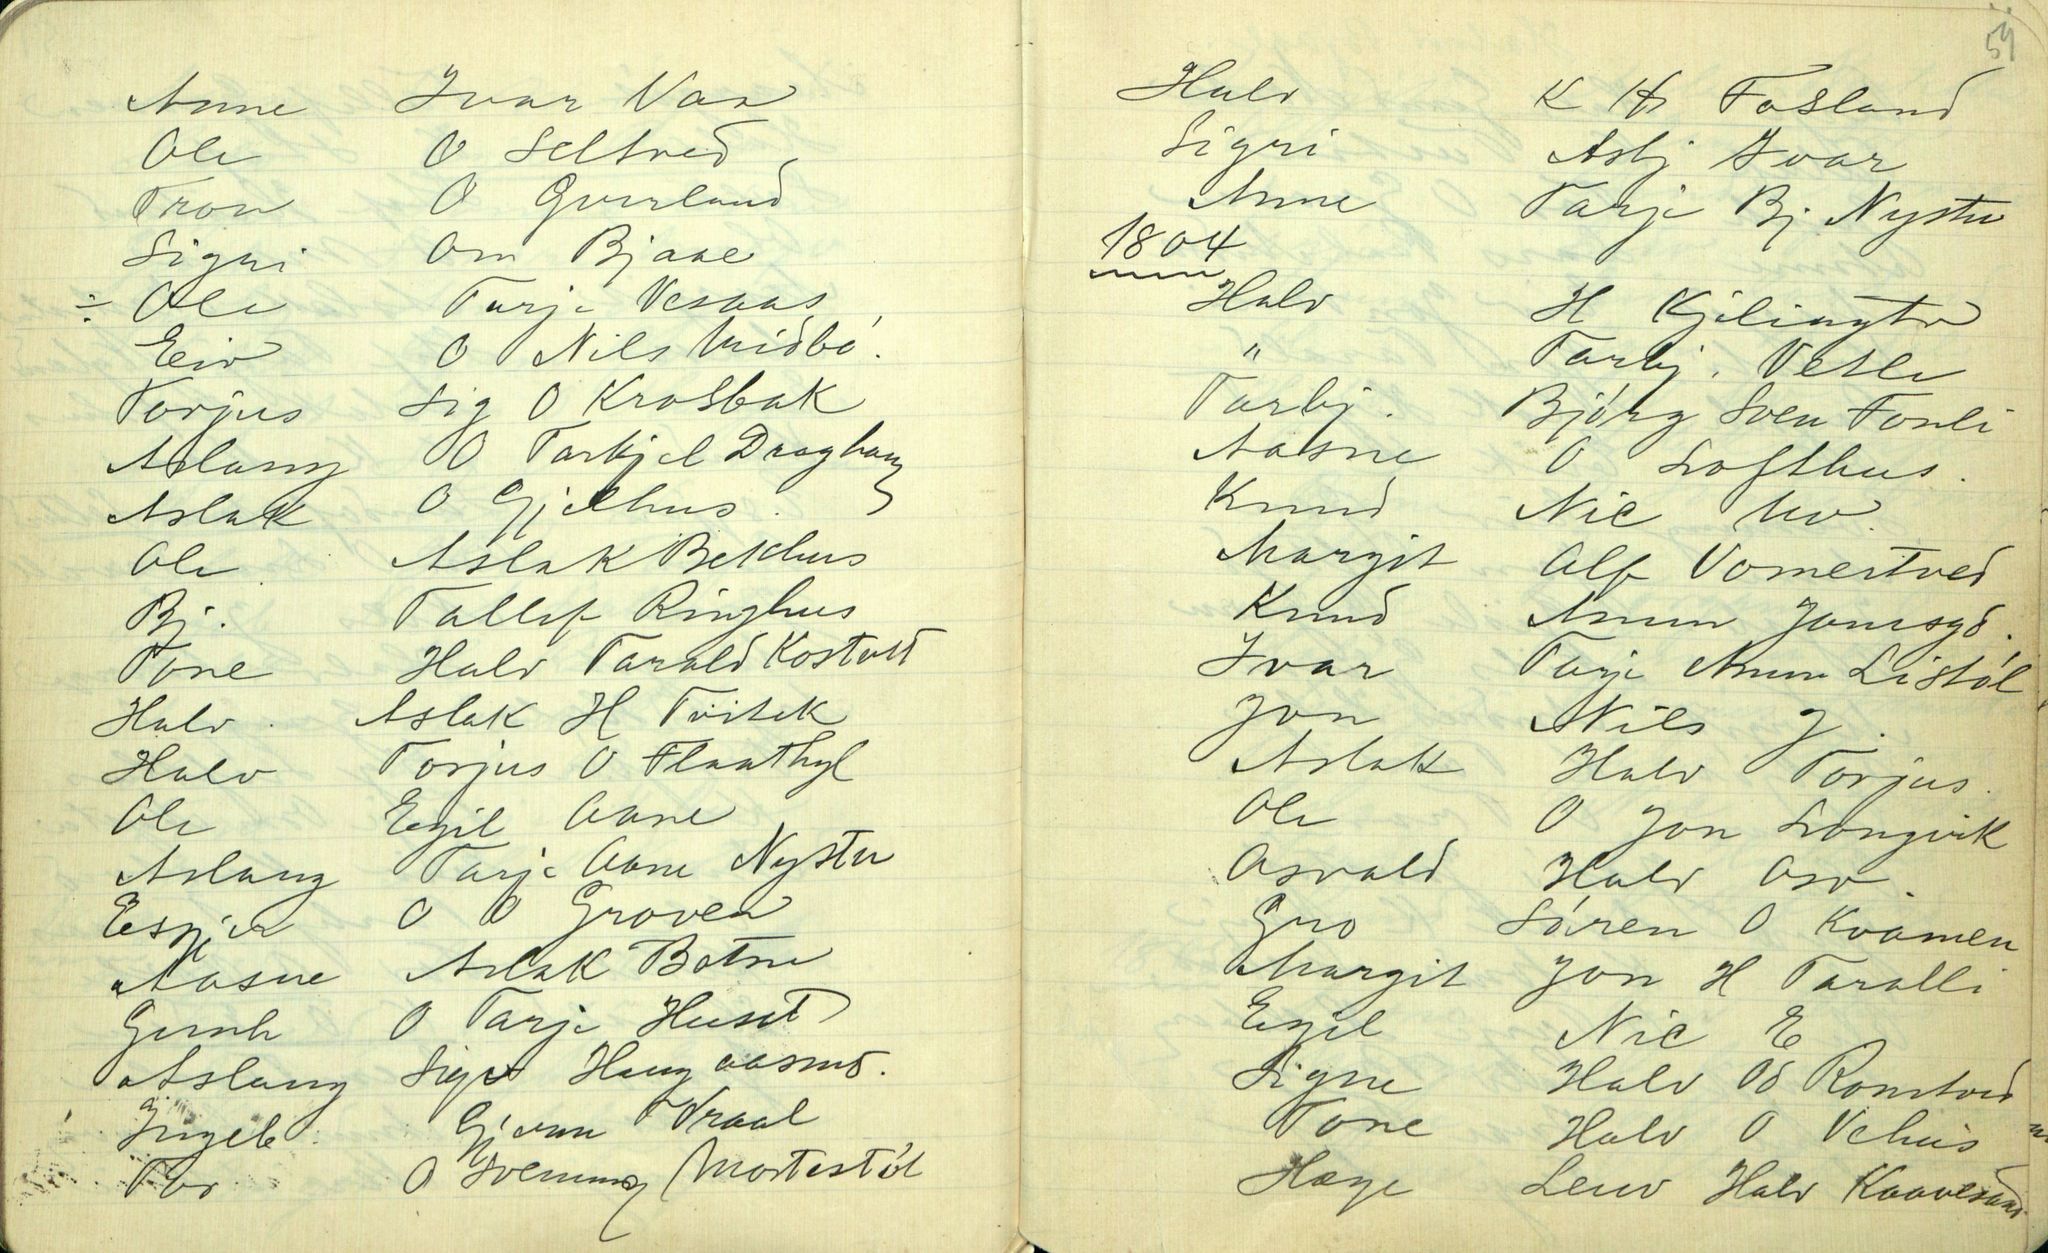 Anne Ivar Vaa
Ole O Seltved
Tron O Gurrland
Sigri Om Bjaae
÷ Ole Tarje Vesaas
Eiv O Nils Midbö.
Torjus Sig O Krosbak
Aslaug O Tarkjel Draghaug
Aslak O Gjelhus.
Ole Aslak Bekhus
Bj. Tallef Ringhus
Tone Halv Tarald Kostvett
Halv. Aslak H Tvitek
Halv Torjus O Flaathyl
Ole Egil Aane
Aslaug Tarje Aane Nystu
Espjer O O Groven
Aasne Aslak Botne
Gunh O Tarje Huset
Aslaug Sig Haugaasmo.
Ingeb. Gjerm Vraal
Tor O Svenung Mortestöl
59
Halv K H Fosland
Sigri Asbj Ivar
Anne Tarje Bj. Nystu
1804
Halv H Kjelingtv
" Tarbj. Vetle
Tarbj. Björg Sven Fonli
Aasne O Lofthus.
Knud Nic Mo.
Margit Alf Vomestved
Knud Anun Jonsgd.
Ivar Tarje Anun Listöl
Jon Nils J.
Aslak Halv Torjus.
Ole O Jon Longvik
Asvald Halv Asv.
Gro Sören O Kvamen
Margit Jon H Taralli
Egil Nic E
Signe Halv Od Romtved
Tone Halv O Vehus
Hæge Leiv Halv Kaavesand